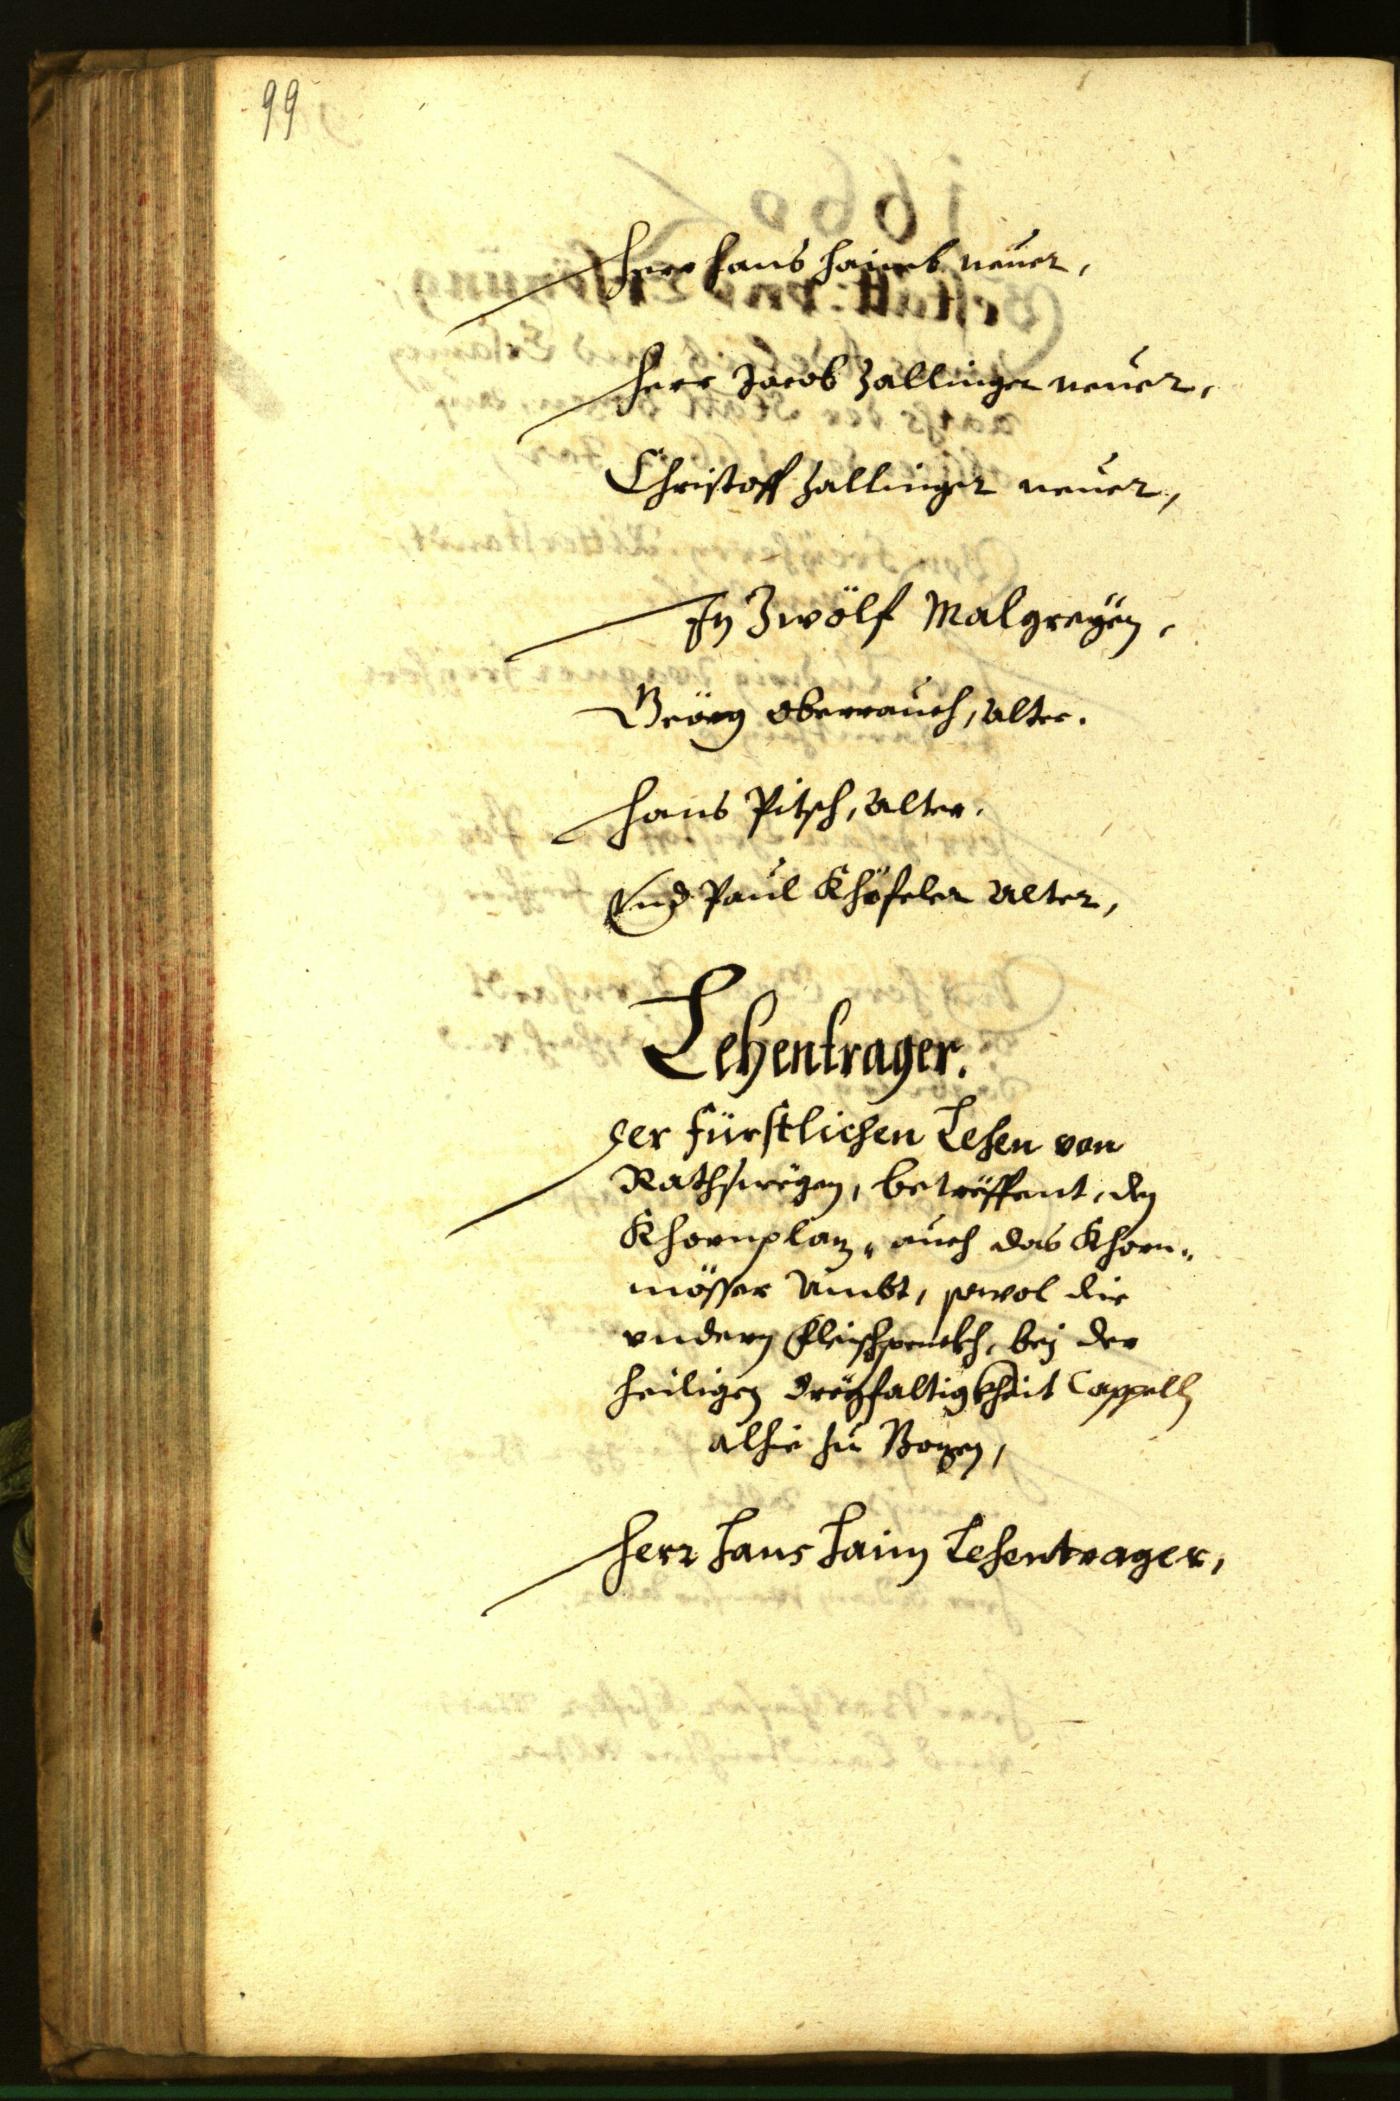 99
Herr Hans Haimb neuer,
Herr Jacob Zallinger neuer,
Christoff Zallinger neuer,
In Zwölf Malgreÿen,
Geörg Oberrauch, Alter.
Hans Pitsch, Alter.
Und Paul Khöfeler Alter,
Lehentrager.
Der fürstlichen Lehen von
Rathswegen, betreffent, den
Khornplaz, auch das Khorn„
mösser Ambt, sowol die
undern Fleischpenckh, bey der
heiligen Dreÿfaltigkheit Cappelln
alhie zu Bozen,
Herr Hans Haim Lehentrager,